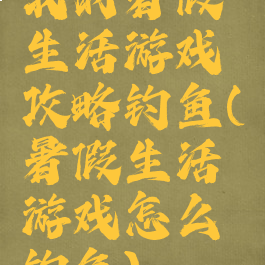 我的暑假
生活游戏
攻略钓鱼(
暑假生活
游戏怎么
钓鱼)